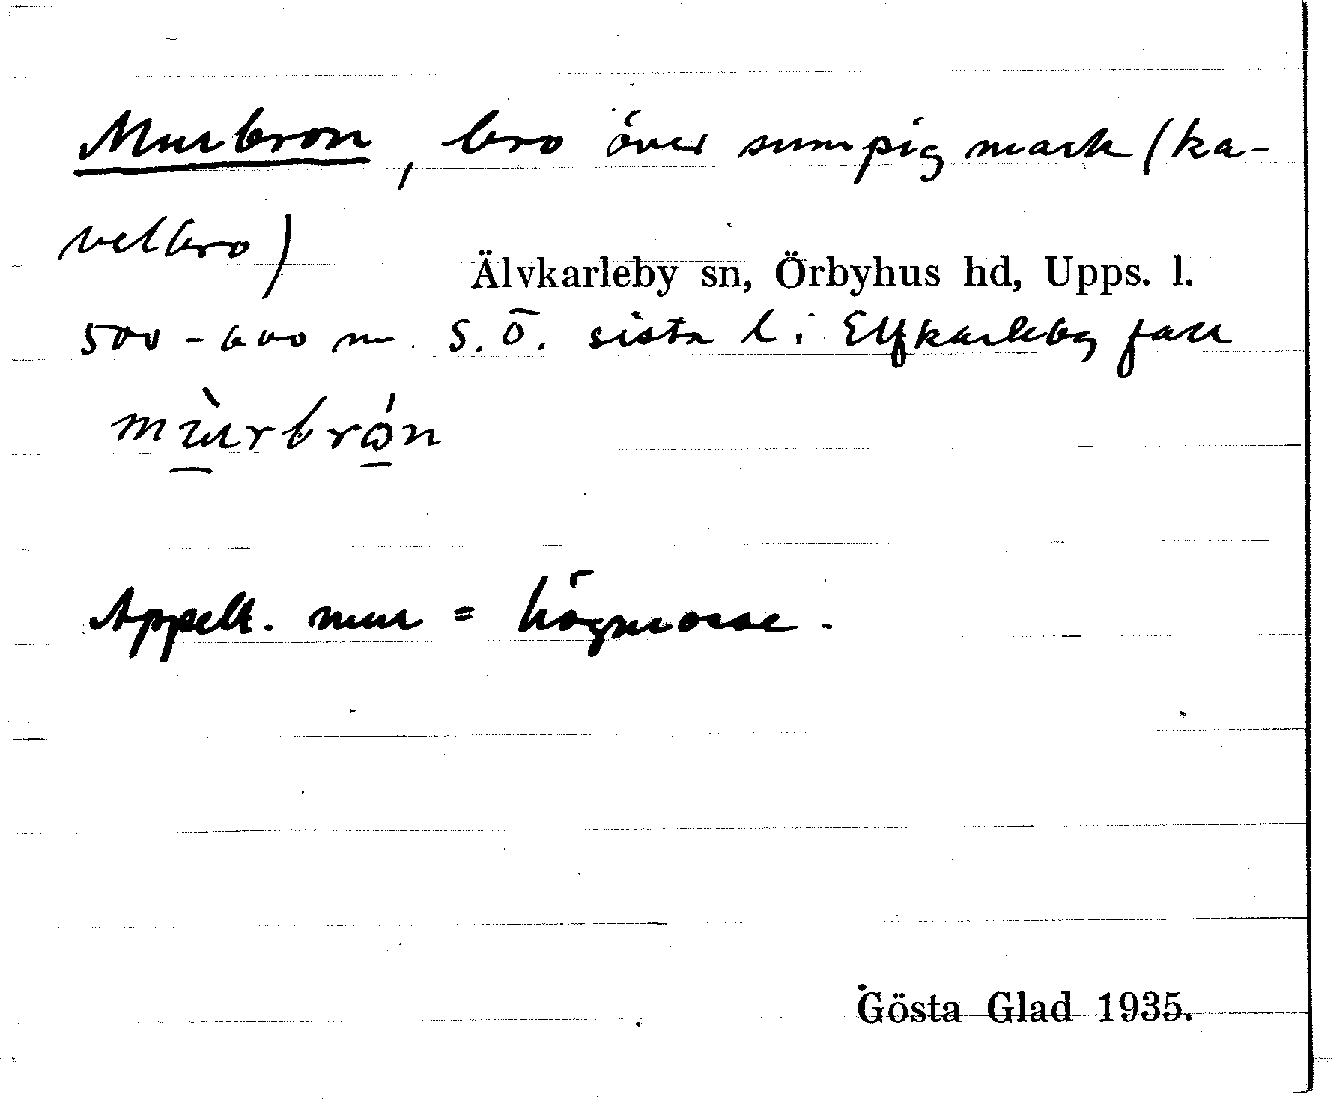 Murbron, bro över sumpig mark (ka-
velbro)
Älvkarleby sn, Örbyhus hd, Upps. l.
500-600 m S.Ö. sista l i Elfkarleby fall
mùrbrón
Appell. mur = högmosse.
Gösta Glad 1935.